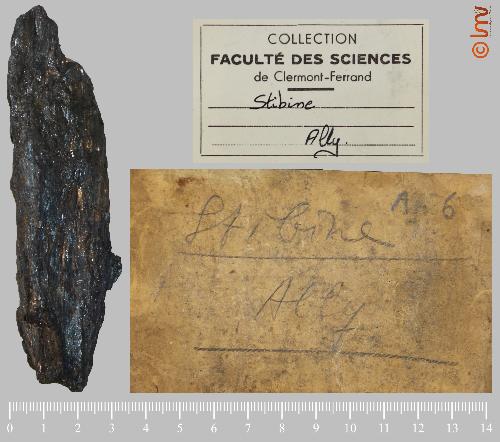 COLLECTION
FACULTÉ DES SCIENCES
de Clermont-Ferrand
Stibine
Ally.
© lmv
Stibine
Ally
0 1 2 3 4 5 6 7 8 9 10 11 12 13 14